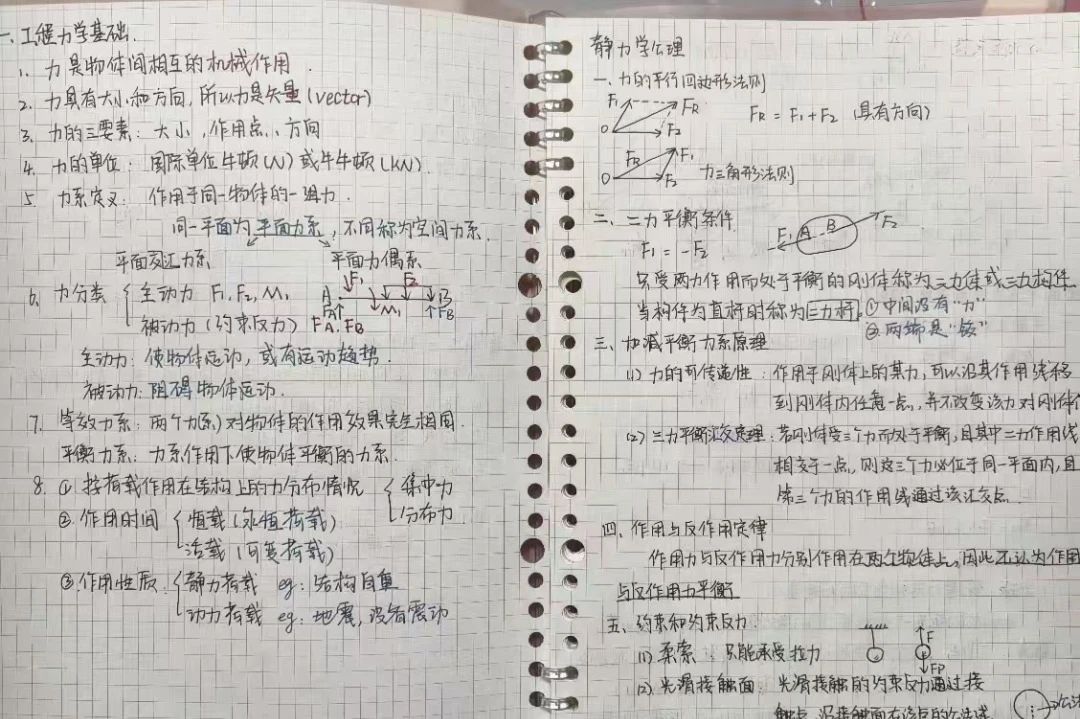 一、工程力学基础.
1. 力是物体间相互的机械作用.
2. 力具有大小和方向,所以力是矢量(vector)
3. 力的三要素: 大小,作用点、方向
4. 力的单位: 国际单位牛顿(N)或牛牛顿(kN).
5. 力系定义: 作用于同一物体的一组力.
同一平面为平面力系,不同称为空间力系.
平面汇交力系 平面力偶系
6. 力分类 { 主动力 F1, F2, M1
A F1 F2 B
被动力(约束反力) FA. FB
FA M1 FB
主动力: 使物体运动,或有运动趋势.
被动力: 阻碍物体运动.
7. 等效力系: 两个力系)对物体的作用效果完全相同.
平衡力系: 力系作用下使物体平衡的力系.
8. ① 按荷载作用在结构上的力分布情况 { 集中力
分布力.
② 作用时间 { 恒载(永恒荷载)
活载(可变荷载)
③ 作用性质: { 静力荷载 eg: 结构自重
动力荷载 eg: 地震,设备震动
静力学公理
一.力的平行四边形法则
F1 FR O F2
FR = F1 + F2 (具有方向)
FR F1 O F2 力三角形法则
二、二力平衡条件
F1 A B F2
F1 = -F2
只受两力作用而处于平衡的刚体称为二力体或二力构件
当构件为直杆时称为二力杆. ①中间没有"力"
②两端是"铰"
三、加减平衡力系原理
(1) 力的可传递性: 作用于刚体上的某力,可以沿其作用线移
到刚体内任意一点,并不改变该力对刚体
(2) 三力平衡汇交定理: 若刚体受三个力而处于平衡,且其中二力作用线
相交于一点,则这三个力必位于同一平面内,且
第三个力的作用线通过该汇交点.
四、作用与反作用定律
作用力与反作用力分别作用在两个物体上,因此不认为作用
与反作用力平衡
五、约束和约束反力
(1) 柔索: 只能承受拉力
F
FP
(2) 光滑接触面: 光滑接触的约束反力通过接
触点,沿接触面在该点的公法线